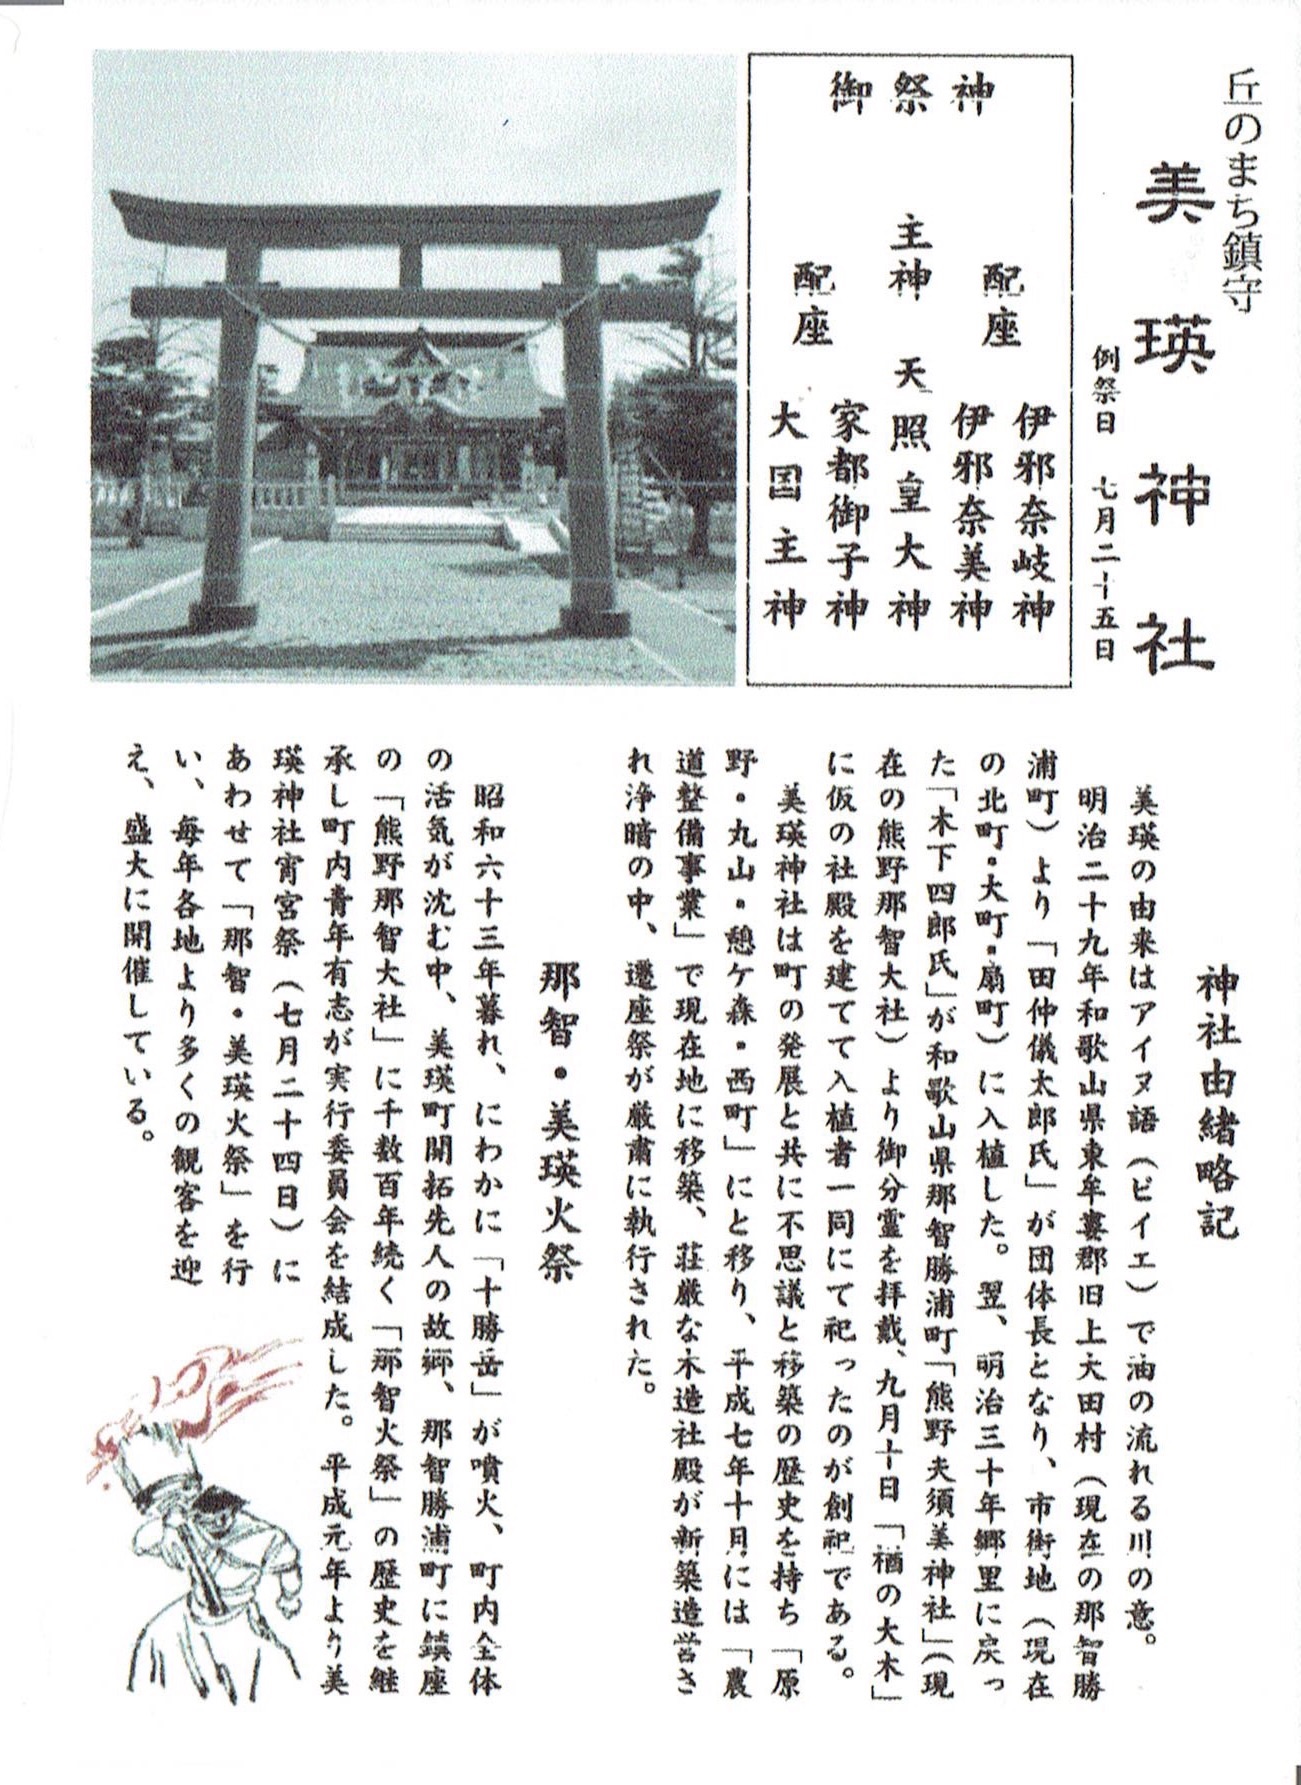 丘のまち鎮守
美瑛神社
例祭日 七月二十五日
御祭神
配座 伊邪奈岐神
伊邪奈美神
主神 天照皇大神
配座 家都御子神
大国主神
神社由緒略記
美瑛の由来はアイヌ語(ビイエ)で油の流れる川の意。
明治二十九年和歌山県東牟婁郡旧上大田村(現在の那智勝
浦町)より「田仲儀太郎氏」が団体長となり、市街地(現在
の北町・大町・扇町)に入植した。翌、明治三十年郷里に戻っ
た「木下四郎氏」が和歌山県那智勝浦町「熊野夫須美神社」(現
在の熊野那智大社)より御分霊を拝戴、九月十日「楢の大木」
に仮の社殿を建てて入植者一同にて祀ったのが創祀である。
美瑛神社は町の発展と共に不思議と移築の歴史を持ち「原
野・丸山・憩ケ森・西町」にと移り、平成七年十月には「農
道整備事業」で現在地に移築、荘厳な木造社殿が新築造営さ
れ浄暗の中、遷座祭が厳粛に執行された。
那智・美瑛火祭
昭和六十三年暮れ、にわかに「十勝岳」が噴火、町内全体
の活気が沈む中、美瑛町開拓先人の故郷、那智勝浦町に鎮座
の「熊野那智大社」に千数百年続く「那智火祭」の歴史を継
承し町内青年有志が実行委員会を結成した。平成元年より美
瑛神社宵宮祭(七月二十四日)に
あわせて「那智・美瑛火祭」を行
い、毎年各地より多くの観客を迎
え、盛大に開催している。